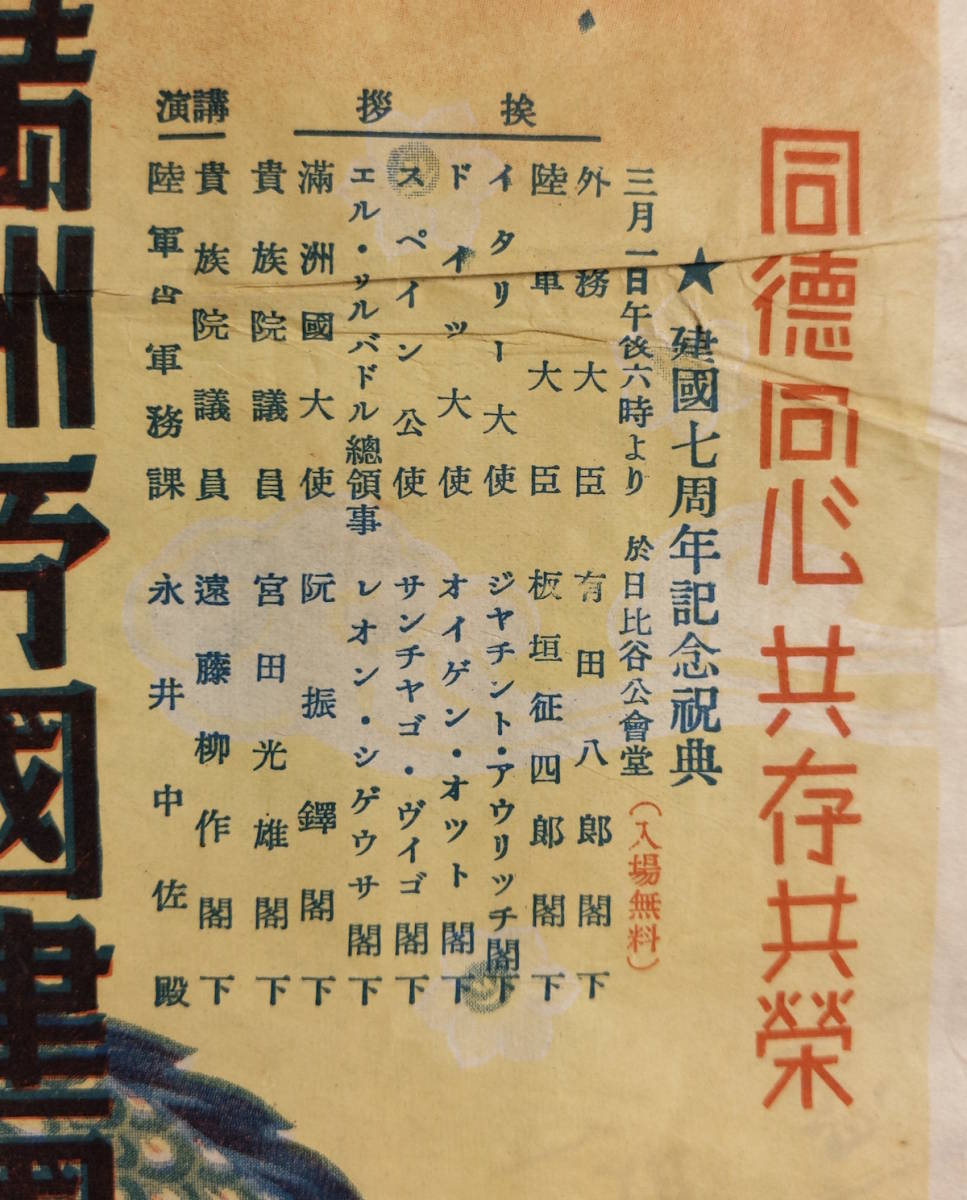 同德同心 共存共榮
★ 建國七周年記念祝典
三月一日午後六時より 於日比谷公會堂 (入場無料)
挨拶
外務大臣 有田八郎閣下
陸軍大臣 板垣征四郎閣下
イタリー大使 ジヤチント・アウリッチ閣下
ドイツ大使 オイゲン・オツト閣下
スペイン公使 サンチヤゴ・ヴイゴ閣下
エル・サルバドル總領事 レオン・シゲウサ閣下
滿洲國大使 阮振鐸閣下
貴族院議員 宮田光雄閣下
講演
貴族院議員 遠藤柳作閣下
陸軍省軍務課 永井中佐殿
滿州帝國建國